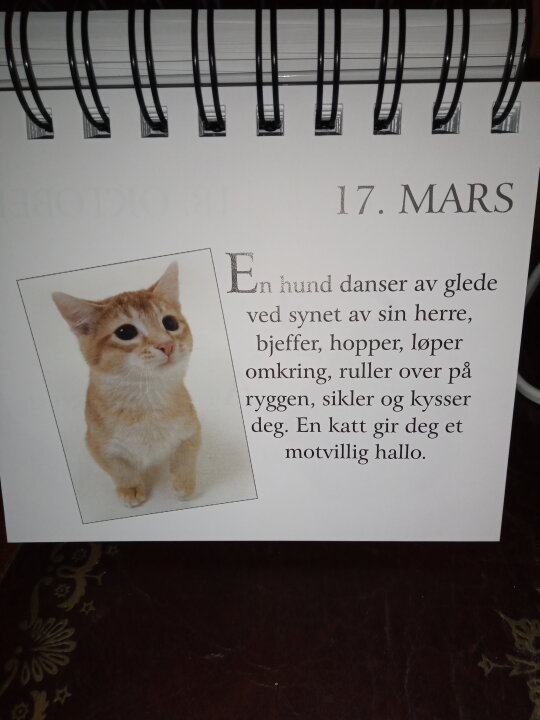 17. MARS
En hund danser av glede
ved synet av sin herre,
bjeffer, hopper, løper
omkring, ruller over på
ryggen, sikler og kysser
deg. En katt gir deg et
motvillig hallo.